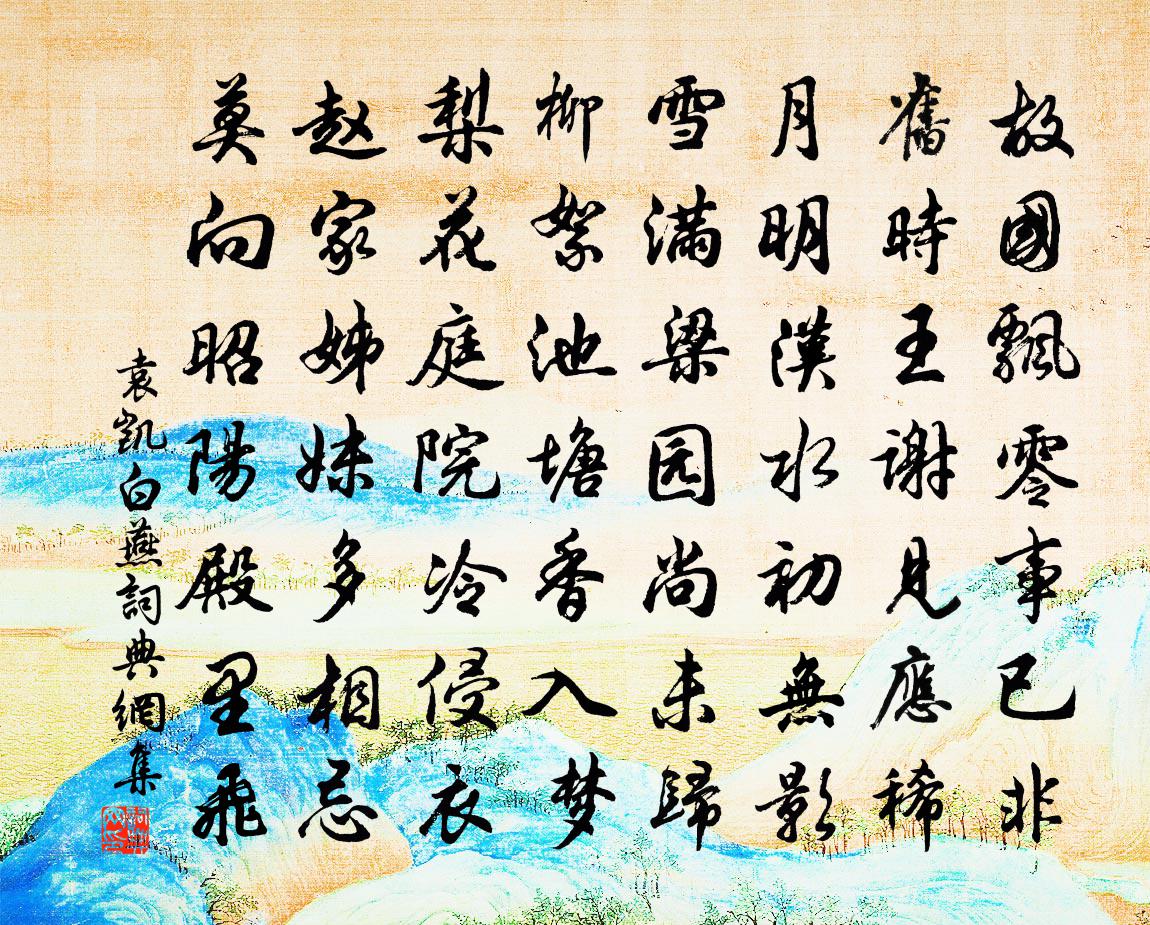 故國飄零事已非
舊時王谢見應稀
月明漢水初無影
雪满梁园尚未歸
柳絮池塘香入梦
梨花庭院冷侵衣
赵家姊妹多相忌
莫向昭陽殿里飛
袁凱白燕詞典網集